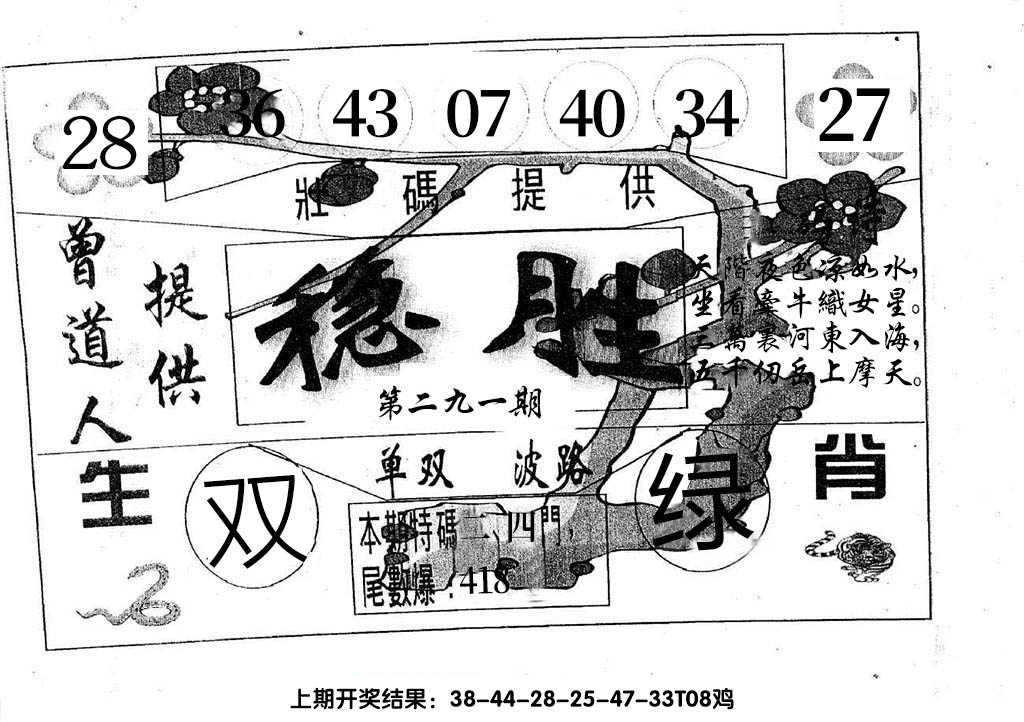 28 36 43 07 40 34 27
壯碼提供
特
曾道人
提供
稳胜
第二九一期
天階夜色涼如水，
坐看牽牛織女星。
三萬裏河東入海，
五千仞岳上摩天。
生
双
单双 波路
绿
肖
本期特碼二、四門，
尾數爆：418
上期开奖结果：38-44-28-25-47-33T08鸡